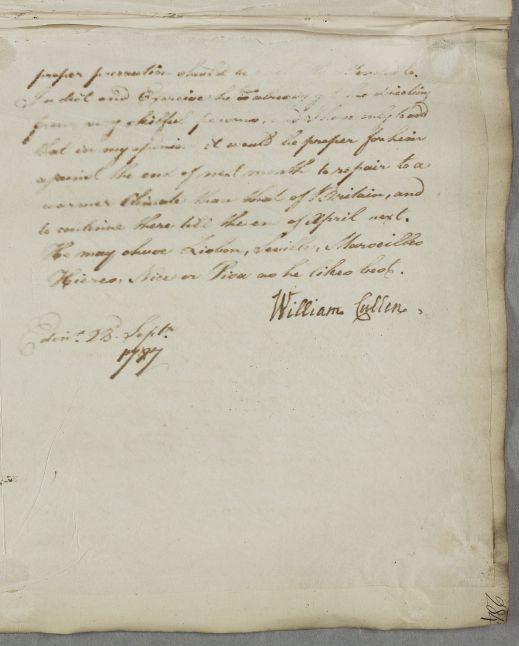 proper precaution should be
In diet and Exercise he has already got the direction
from very skilful persons, and I have only to add
that in my opinion it would be proper for him
against the end of next month to repair to a
warmer Climate than that of Britain, and
to continue there till the end of April next.
He may chuse Lisbon, Seville, Marseilles
Hieres, Nice or Pisa as he likes best.
William Cullen.
Edinr. 23. Septr.
1787
284